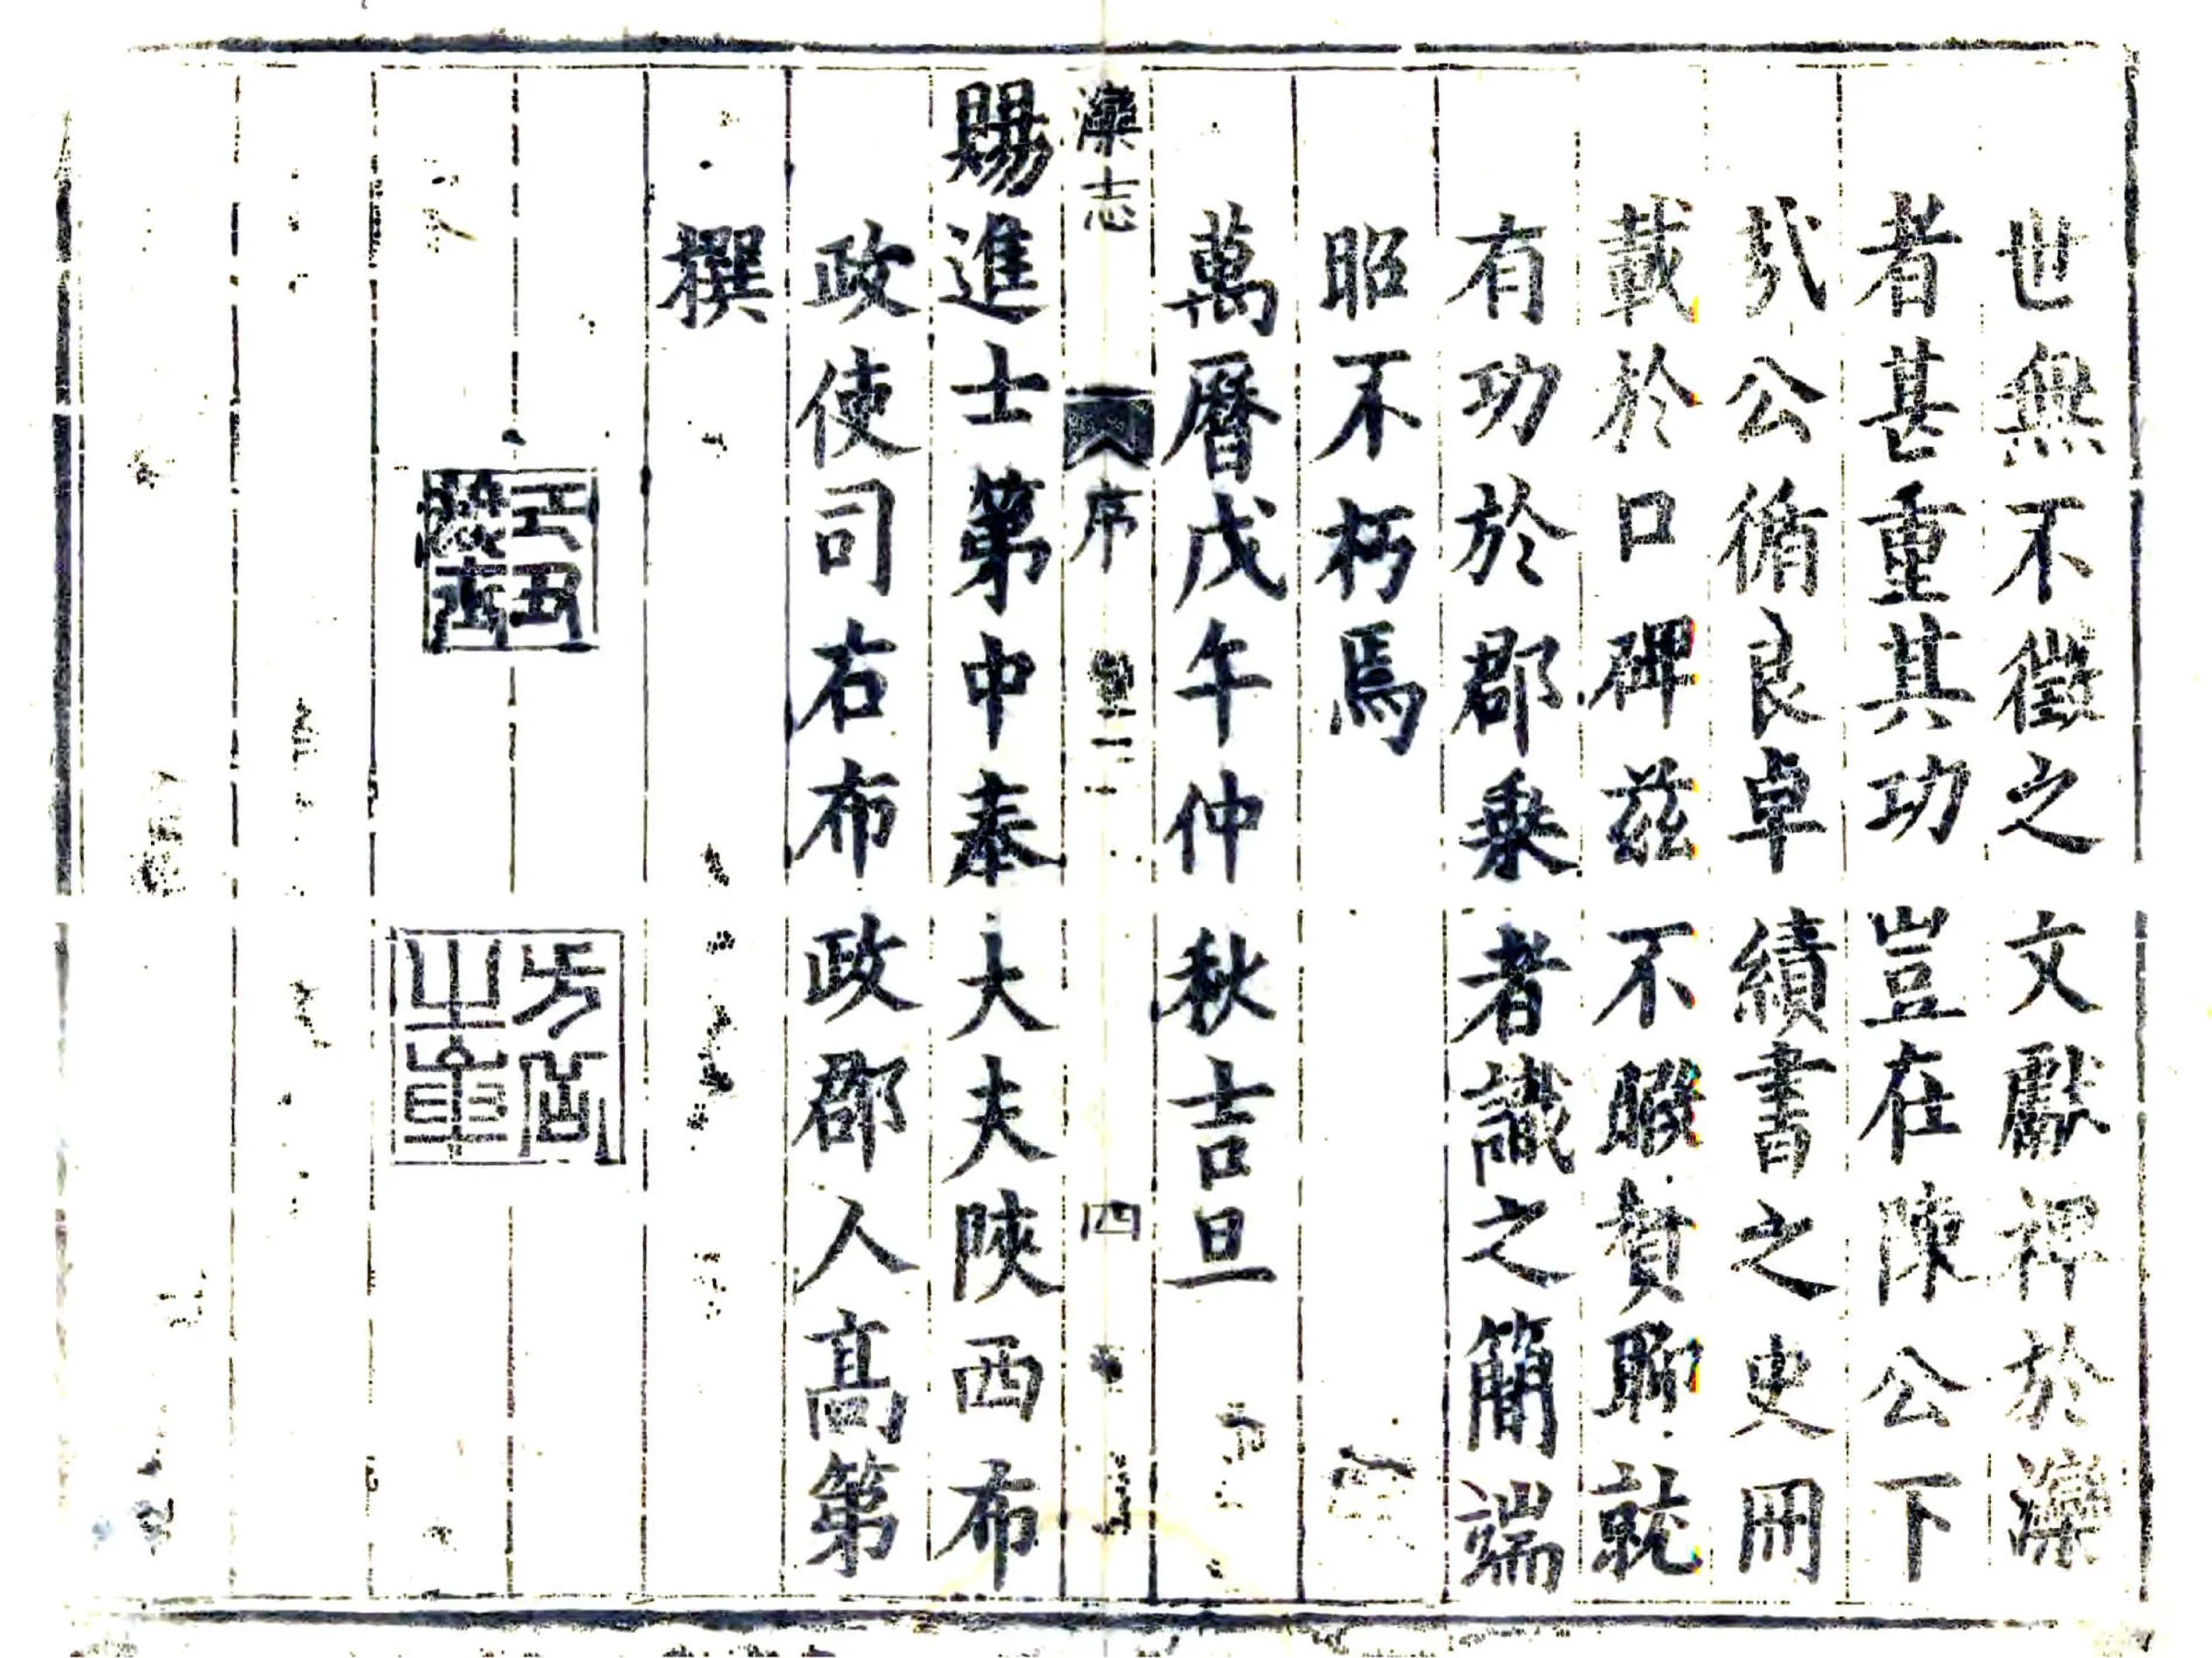 世無不徵之文獻裨於灤
者甚重其功豈在陳公下
公循良卓績書之史冊
載於口碑茲不暇贅聊就
有功於郡乘者識之簡端
昭不朽焉
萬曆戊午仲秋吉旦
灤志 序 四
賜進士第中奉大夫陝西布
政使司右布政郡人高第
撰